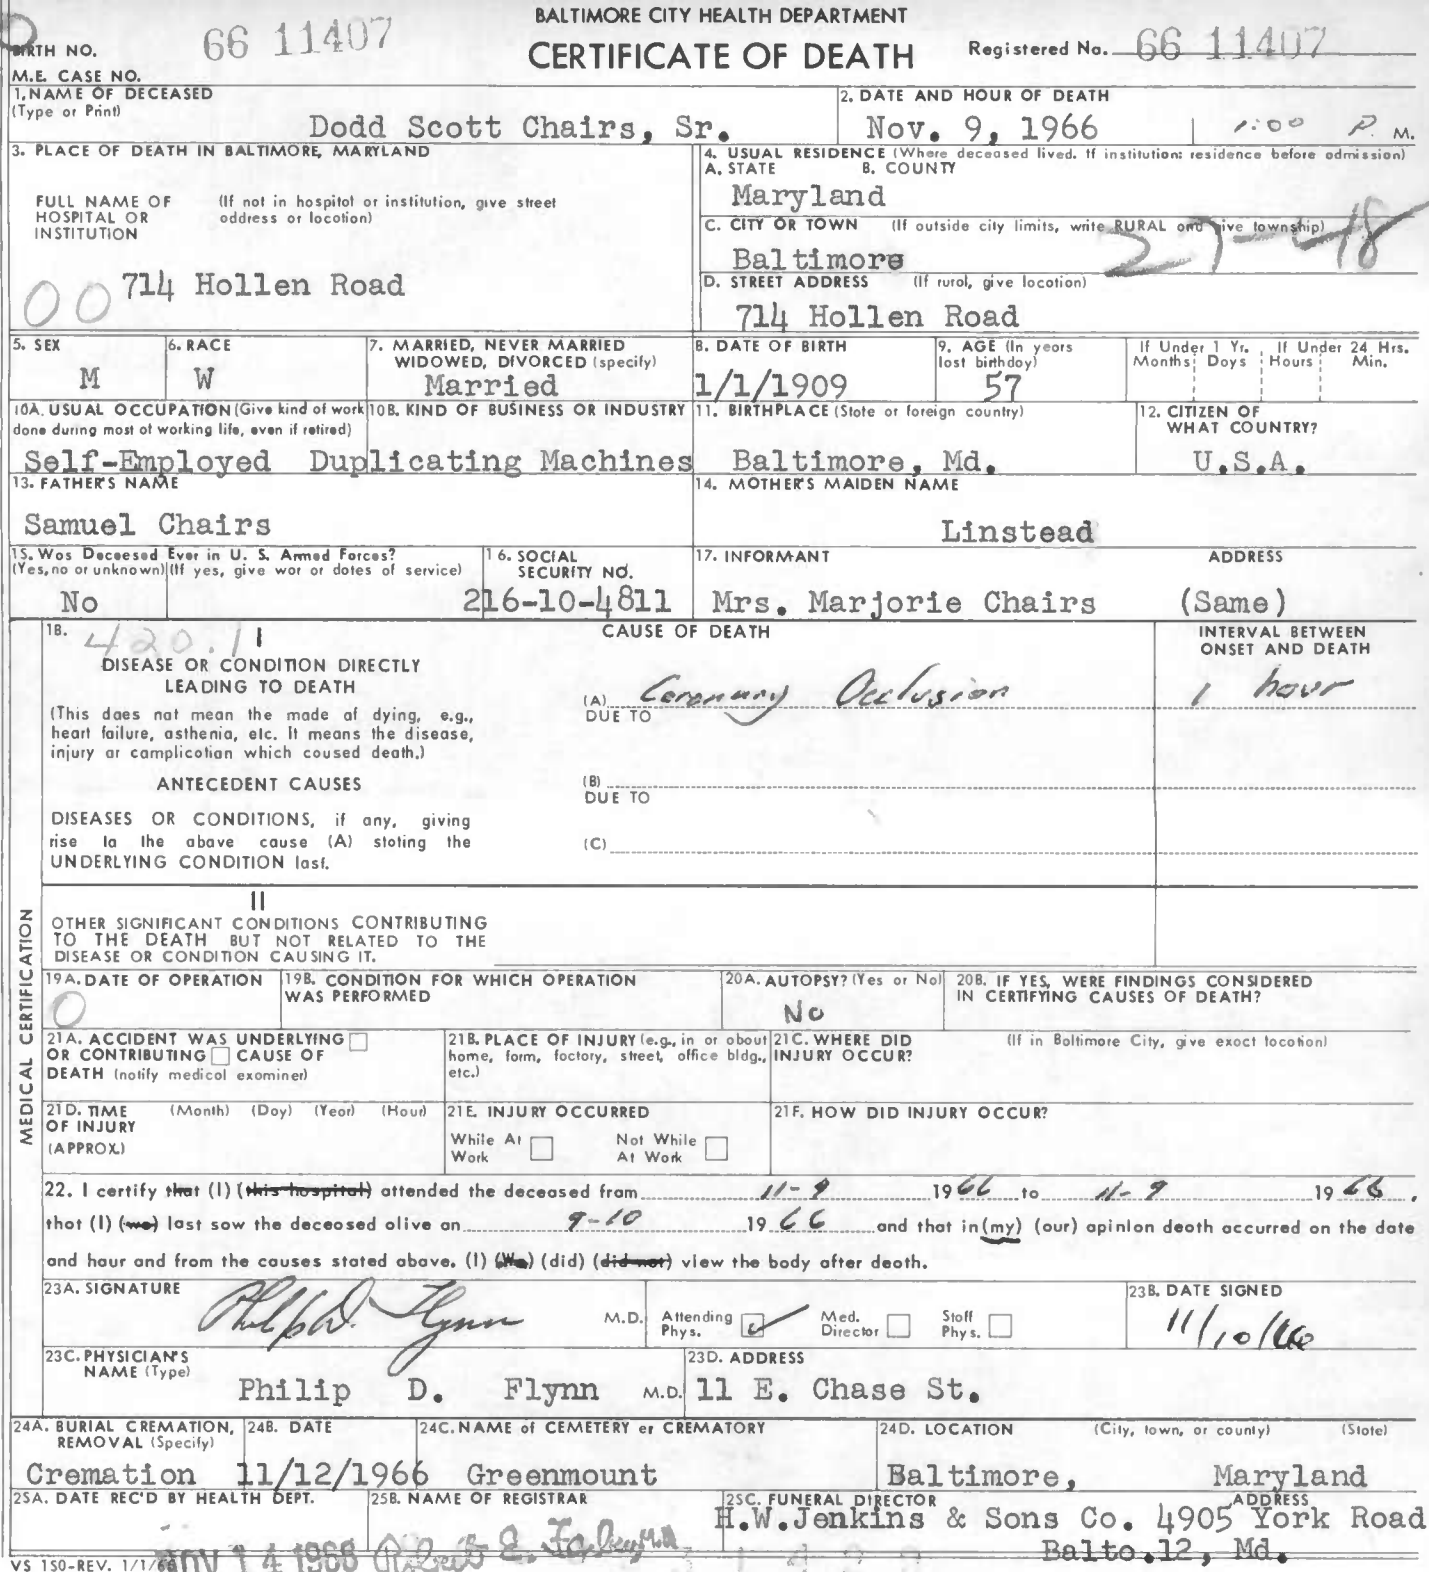 BALTIMORE CITY HEALTH DEPARTMENT
BIRTH NO. 66 11407 CERTIFICATE OF DEATH Registered No. 66 11407
M.E. CASE NO.
1. NAME OF DECEASED (Type or Print) Dodd Scott Chairs, Sr.
2. DATE AND HOUR OF DEATH Nov. 9, 1966 1:00 P. M.
3. PLACE OF DEATH IN BALTIMORE, MARYLAND
FULL NAME OF HOSPITAL OR INSTITUTION (If not in hospital or institution, give street address or location)
00 714 Hollen Road
4. USUAL RESIDENCE (Where deceased lived. If institution: residence before admission)
A. STATE B. COUNTY
Maryland
C. CITY OR TOWN (If outside city limits, write RURAL and give township)
Baltimore 27-48
D. STREET ADDRESS (If rural, give location)
714 Hollen Road
5. SEX M
6. RACE W
7. MARRIED, NEVER MARRIED WIDOWED, DIVORCED (specify) Married
8. DATE OF BIRTH 1/1/1909
9. AGE (In years last birthday) 57
If Under 1 Yr. Months Days If Under 24 Hrs. Hours Min.
10A. USUAL OCCUPATION (Give kind of work done during most of working life, even if retired) Self-Employed
10B. KIND OF BUSINESS OR INDUSTRY Duplicating Machines
11. BIRTHPLACE (State or foreign country) Baltimore, Md.
12. CITIZEN OF WHAT COUNTRY? U.S.A.
13. FATHER'S NAME Samuel Chairs
14. MOTHER'S MAIDEN NAME Linstead
15. Was Deceased Ever in U. S. Armed Forces? (Yes, no or unknown) (If yes, give war or dates of service) No
16. SOCIAL SECURITY NO. 216-10-4811
17. INFORMANT ADDRESS Mrs. Marjorie Chairs (Same)
MEDICAL CERTIFICATION
18. 420.1 I CAUSE OF DEATH INTERVAL BETWEEN ONSET AND DEATH
DISEASE OR CONDITION DIRECTLY LEADING TO DEATH
(This does not mean the mode of dying, e.g., heart failure, asthenia, etc. It means the disease, injury or complication which caused death.)
(A) Coronary Occlusion 1 hour
DUE TO
ANTECEDENT CAUSES
(B)
DUE TO
DISEASES OR CONDITIONS, if any, giving rise to the above cause (A) stating the UNDERLYING CONDITION last.
(C)
II
OTHER SIGNIFICANT CONDITIONS CONTRIBUTING TO THE DEATH BUT NOT RELATED TO THE DISEASE OR CONDITION CAUSING IT.
19A. DATE OF OPERATION 0
19B. CONDITION FOR WHICH OPERATION WAS PERFORMED
20A. AUTOPSY? (Yes or No) No
20B. IF YES, WERE FINDINGS CONSIDERED IN CERTIFYING CAUSES OF DEATH?
21A. ACCIDENT WAS UNDERLYING OR CONTRIBUTING CAUSE OF DEATH (notify medical examiner)
21B. PLACE OF INJURY (e.g., in or about home, farm, factory, street, office bldg., etc.)
21C. WHERE DID INJURY OCCUR? (If in Baltimore City, give exact location)
21D. TIME OF INJURY (APPROX.) (Month) (Day) (Year) (Hour)
21E. INJURY OCCURRED While At Work Not While At Work
21F. HOW DID INJURY OCCUR?
22. I certify that (I) (this hospital) attended the deceased from 11-9 1966 to 11-9 1966,
that (I) (we) last saw the deceased alive on 9-10 1966 and that in (my) (our) opinion death occurred on the date
and hour and from the causes stated above. (I) (We) (did) (did not) view the body after death.
23A. SIGNATURE Philip D. Flynn M.D. Attending Phys. Med. Director Staff Phys.
23B. DATE SIGNED 11/10/66
23C. PHYSICIAN'S NAME (Type) Philip D. Flynn M.D.
23D. ADDRESS 11 E. Chase St.
24A. BURIAL CREMATION, REMOVAL (Specify) Cremation
24B. DATE 11/12/1966
24C. NAME of CEMETERY or CREMATORY Greenmount
24D. LOCATION (City, town, or county) (State) Baltimore, Maryland
25A. DATE REC'D BY HEALTH DEPT. NOV 14 1966
25B. NAME OF REGISTRAR Robert E. Farber, M.D.
25C. FUNERAL DIRECTOR ADDRESS H.W.Jenkins & Sons Co. 4905 York Road
Balto.12, Md.
VS 150-REV. 1/1/66